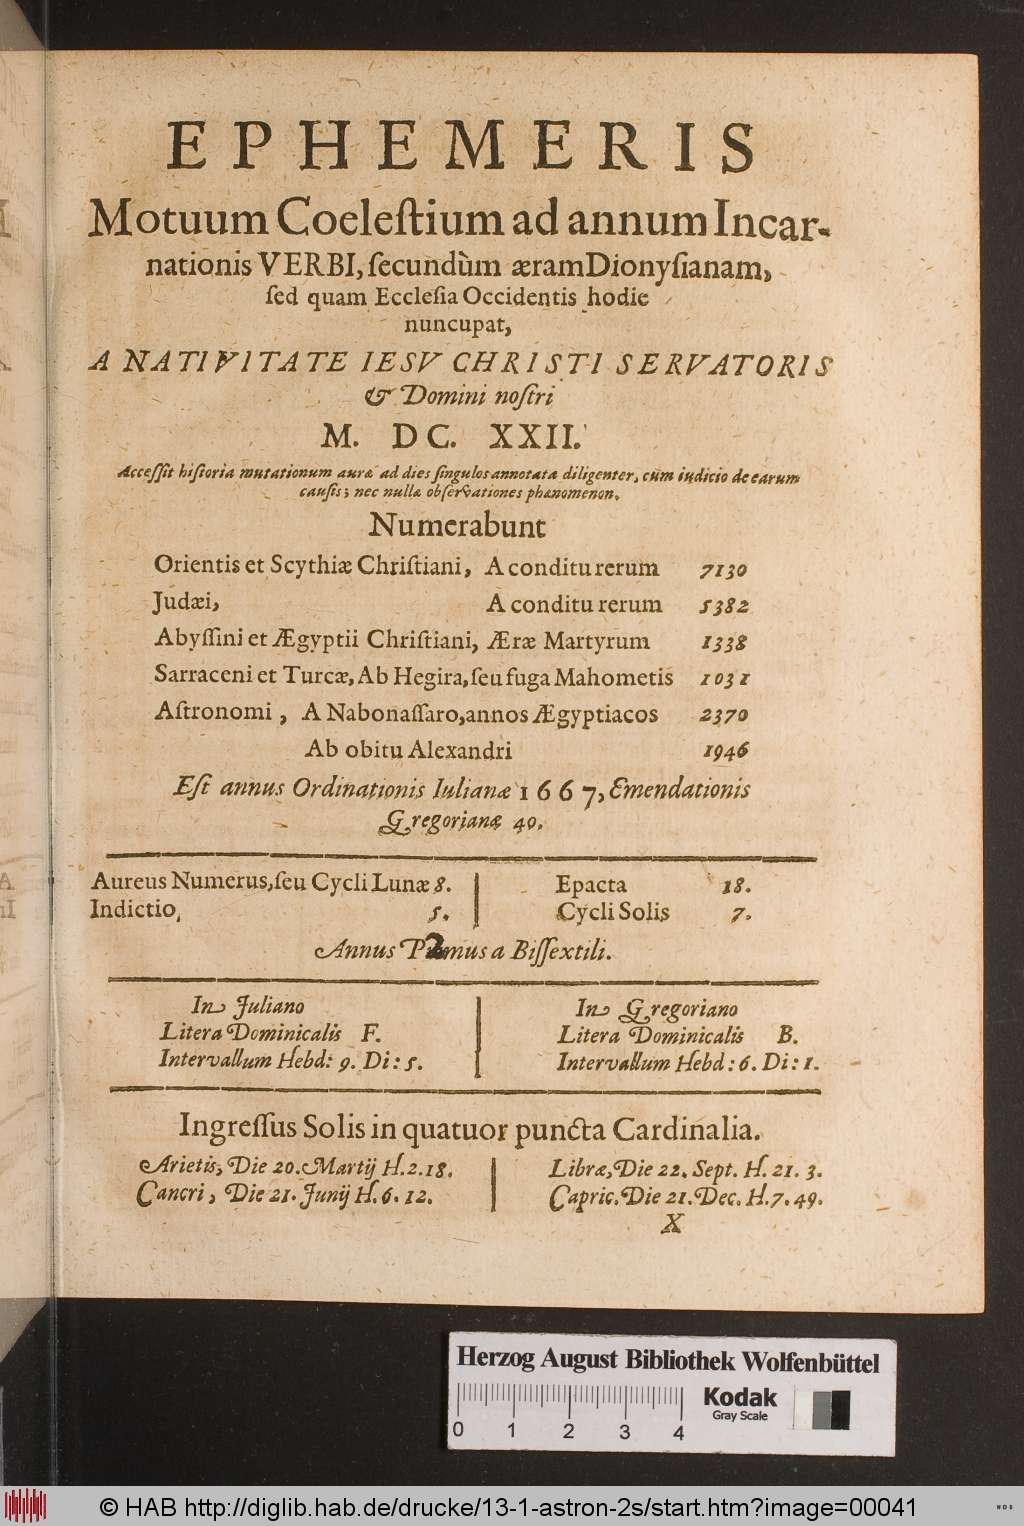 EPHEMERIS
Motuum Coeleſtium ad annum Incar-
nationis VERBI, ſecundùm æram Dionyſianam,
ſed quam Eccleſia Occidentis hodie
nuncupat,
A NATIVITATE IESV CHRISTI SERVATORIS
& Domini noſtri
M. DC. XXII.
Acceſſit hiſtoria mutationum auræ ad dies ſingulos annotata diligenter, cum iudicio de earum
cauſis; nec nullæ obſervationes phænomenωn.
Numerabunt
Orientis et Scythiæ Chriſtiani, A conditu rerum 7130
Judæi, A conditu rerum 5382
Abyſſini et Ægyptii Chriſtiani, Æræ Martyrum 1338
Sarraceni et Turcæ, Ab Hegira, ſeu fuga Mahometis 1031
Aſtronomi, A Nabonaſſaro, annos Ægyptiacos 2370
Ab obitu Alexandri 1946
Eſt annus Ordinationis Iulianæ 1667, Emendationis
Gregorianæ 40.
Aureus Numerus, ſeu Cycli Lunæ 8. Epacta 18.
Indictio, 5. Cycli Solis 7.
Annus a Biſſextili.
In Juliano In Gregoriano
Litera Dominicalis F. Litera Dominicalis B.
Intervallum Hebd: 9. Di: 5. Intervallum Hebd: 6. Di: 1.
Ingreſſus Solis in quatuor puncta Cardinalia.
Arietis, Die 20. Martij H. 2. 18. Libræ, Die 22. Sept. H. 21. 3.
Cancri, Die 21. Junij H. 6. 12. Capric. Die 21. Dec. H. 7. 49.
X
Herzog August Bibliothek Wolfenbüttel
Kodak
Gray Scale
0 1 2 3 4
© HAB http://diglib.hab.de/drucke/13-1-astron-2s/start.htm?image=00041